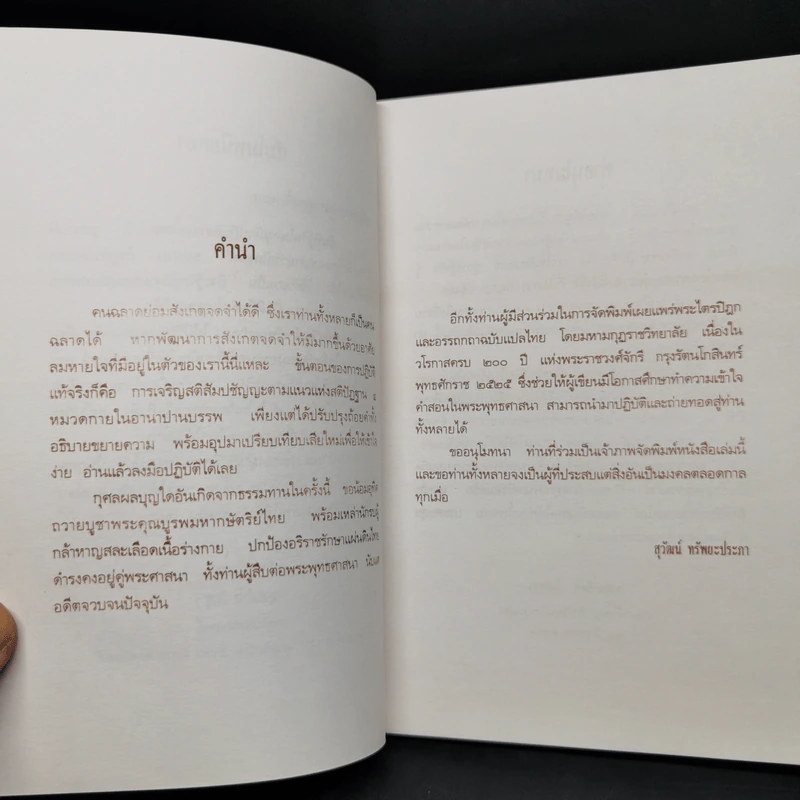 คำนำ
คนฉลาดย่อมสังเกตจดจำได้ดี ซึ่งเราท่านทั้งหลายก็เป็นคน
ฉลาดได้ หากพัฒนาการสังเกตจดจำให้มีมากขึ้นด้วยอาศัย
ลมหายใจที่มีอยู่ในตัวของเรานี้นี่แหละ ขั้นตอนของการปฏิบัติ
แท้จริงก็คือ การเจริญสติสัมปชัญญะตามแนวแห่งสติปัฏฐาน ๔
หมวดกายในอานาปานบรรพ เพียงแต่ได้ปรับปรุงถ้อยคำ
อธิบายขยายความ พร้อมอุปมาเปรียบเทียบเสียใหม่เพื่อให้เข้าใจ
ง่าย อ่านแล้วลงมือปฏิบัติได้เลย
กุศลผลบุญใดอันเกิดจากธรรมทานในครั้งนี้ ขอน้อมอุทิศ
ถวายบูชาพระคุณบูรพมหากษัตริย์ไทย พร้อมเหล่านักรบผู้
กล้าหาญสละเลือดเนื้อร่างกาย ปกป้องอริราชรักษาแผ่นดินไทย
ดำรงคงอยู่คู่พระศาสนา ทั้งท่านผู้สืบต่อพระพุทธศาสนา นับแต่
อดีตจวบจนปัจจุบัน
อีกทั้งท่านผู้มีส่วนร่วมในการจัดพิมพ์เผยแพร่พระไตรปิฎก
และอรรถกถาฉบับแปลไทย โดยมหามกุฏราชวิทยาลัย เนื่องใน
วโรกาสครบ ๒๐๐ ปี แห่งพระราชวงศ์จักรี กรุงรัตนโกสินทร์
พุทธศักราช ๒๕๒๕ ซึ่งช่วยให้ผู้เขียนมีโอกาสศึกษาทำความเข้าใจ
คำสอนในพระพุทธศาสนา สามารถนำมาปฏิบัติและถ่ายทอดสู่ท่าน
ทั้งหลายได้
ขออนุโมทนา ท่านที่ร่วมเป็นเจ้าภาพจัดพิมพ์หนังสือเล่มนี้
และขอท่านทั้งหลายจงเป็นผู้ที่ประสบแต่สิ่งอันเป็นมงคลตลอดกาล
ทุกเมื่อ
สุวัฒน์ ทรัพยะประภา